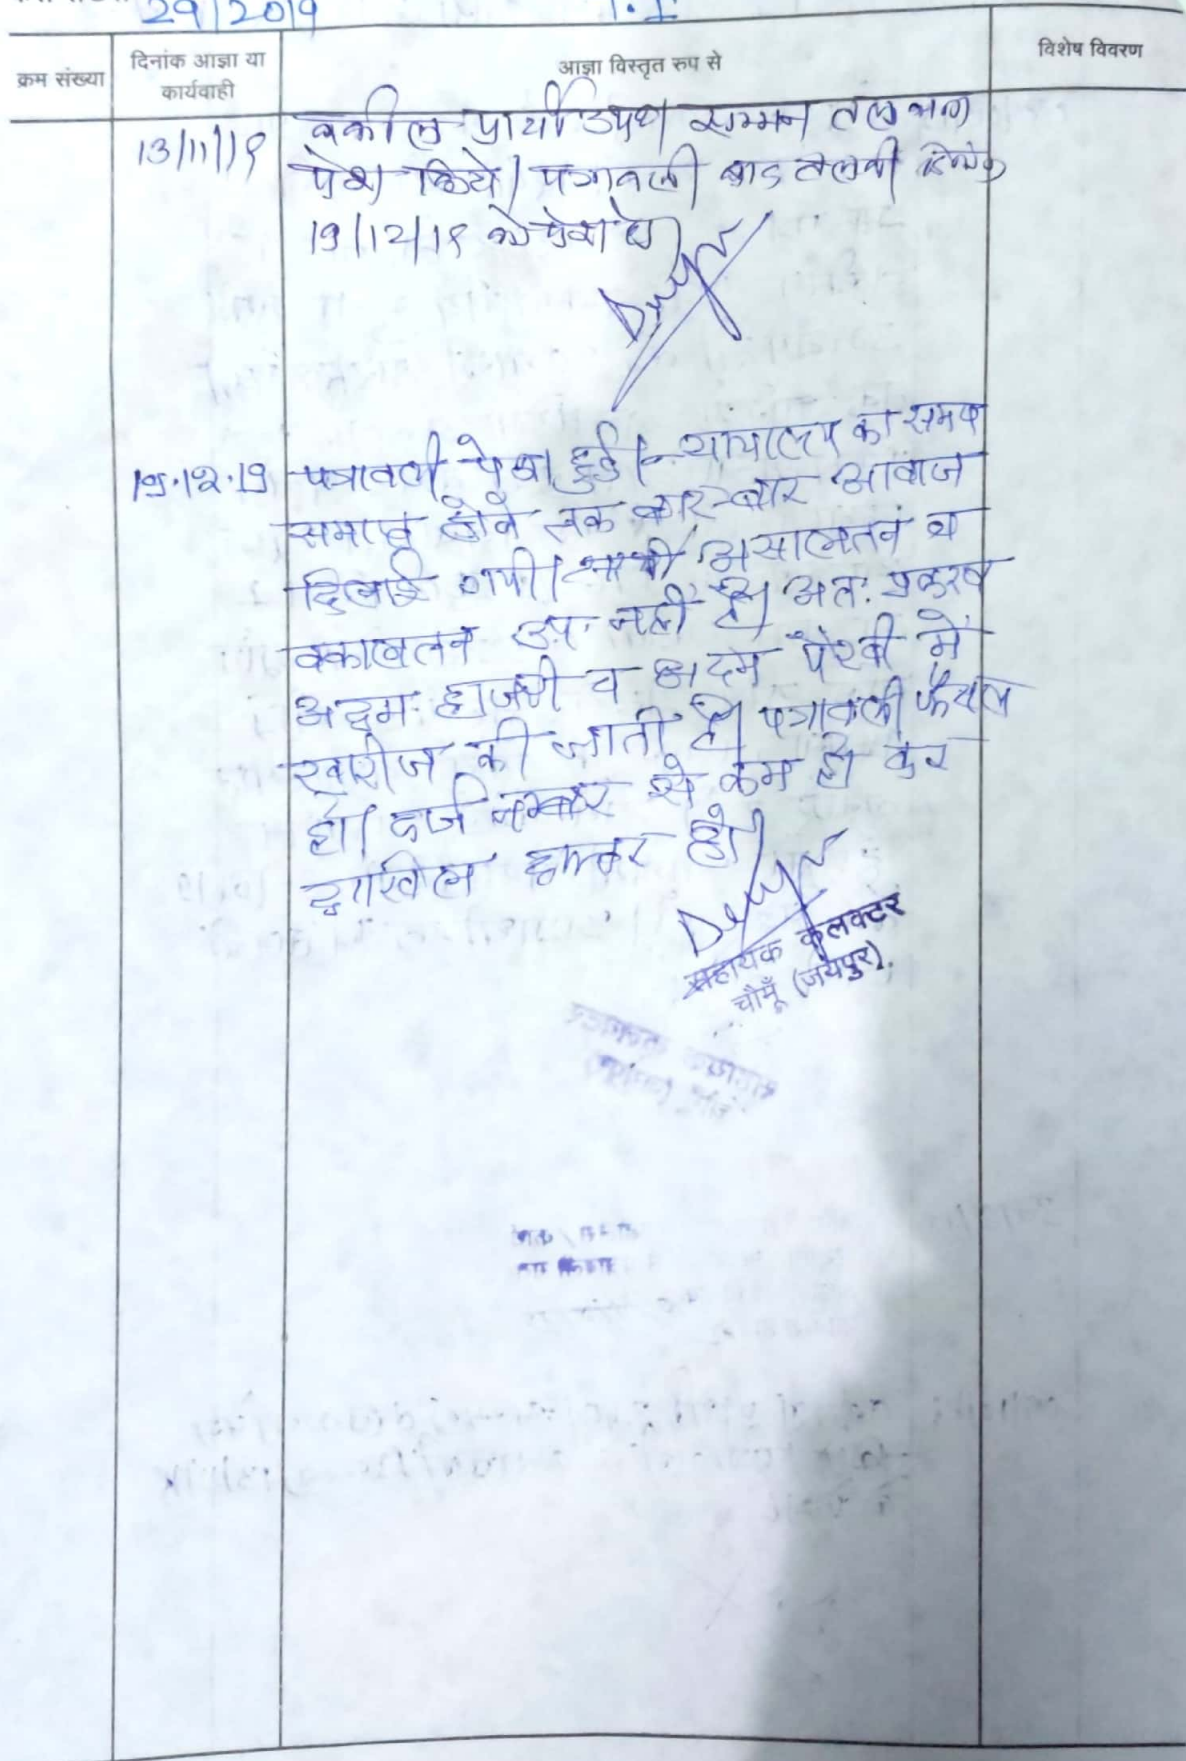 29/2019
T.I
क्रम संख्या
दिनांक आज्ञा या
कार्यवाही
आज्ञा विस्तृत रुप से
विशेष विवरण
13/11/19
वकील प्रार्थी उप० सम्मन तलबाना
पेश किये। पत्रावली बाद तलबी दिनांक
19/12/19 को पेश हो।
19.12.19
पत्रावली पेश हुई। न्यायालय का समय
समाप्त होने तक बार-बार आवाज
दिलाई गयी। प्रार्थी असालतन व
वकालतन उप नहीं है। अतः प्रकरण
अदम हाजरी व अदम पैरवी में
खारीज की जाती है। पत्रावली फैसल
हो। दर्ज नम्बर से कम हो कर
दाखिल दफ्तर हो।
सहायक कलक्टर
चौमूँ (जयपुर)